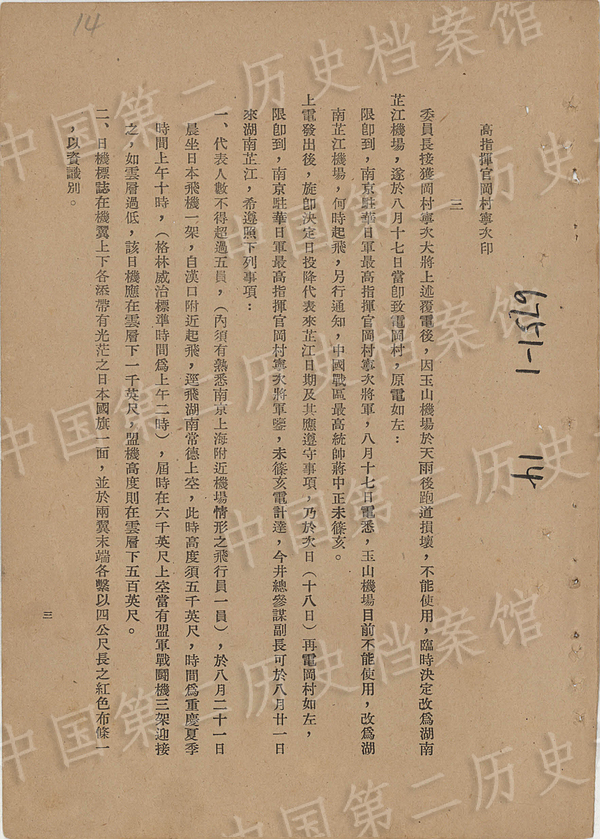 14
高指揮官岡村寧次印
三
委員長接獲岡村寧次大將上述覆電後，因玉山機場於天雨後跑道損壞，不能使用，臨時決定改爲湖南
芷江機場，遂於八月十七日當卽致電岡村，原電如左：
限卽到，南京駐華日軍最高指揮官岡村寧次將軍，八月十七日電悉，玉山機場目前不能使用，改爲湖
南芷江機場，何時起飛，另行通知，中國戰區最高統帥蔣中正未篠亥。
上電發出後，旋卽決定日投降代表來芷江日期及其應遵守事項，乃於次日（十八日）再電岡村如左，
限卽到，南京駐華日軍最高指揮官岡村寧次將軍鑒，未篠亥電計達，今井總參謀副長可於八月廿一日
來湖南芷江，希遵照下列事項：
一、代表人數不得超過五員，（內須有熟悉南京上海附近機場情形之飛行員一員），於八月二十一日
晨坐日本飛機一架，自漢口附近起飛，逕飛湖南常德上空，此時高度須五千英尺，時間爲重慶夏季
時間上午十時，（格林威治標準時間爲上午二時），屆時在六千英尺上空當有盟軍戰鬪機三架迎接
之，如雲層過低，該日機應在雲層下一千英尺，盟機高度則在雲層下五百英尺。
二、日機標誌在機翼上下各添帶有光茫之日本國旗一面，並於兩翼末端各繫以四公尺長之紅色布條一
，以資識別。
三
6751-1
14
中国第二历史档案馆
中国第二历史档案馆
中国第二历史档案馆
中国第二历史档案馆